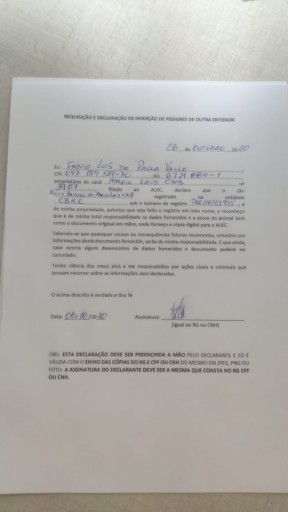 REQUISIÇÃO E DECLARAÇÃO DE INSERÇÃO DE PEDIGREE DE OUTRA ENTIDADE
06 de OUTUBRO de 20
Eu FABIO LUIS DE PAULA VALLE
CPF RG
proprietário do canil nº
filiado ao ALKC, declaro que o cão
registrado na entidade
CBKC sob o número de registro , é
de minha propriedade, autorizo que seja feito o registro em meu nome, e reconheço
que é de minha total responsabilidade os dados fornecidos e a posse do animal bem
como o documento original em mãos, onde forneço a visão digital para o ALKC.
Sabendo-se que quaisquer causas ou consequências futuras recorrentes, oriundas por
informações deste documento fornecido, serão de minha responsabilidade. E que ainda,
caso ocorra algum desencontro de dados fornecidos o documento poderá ser
cancelado.
Tenho ciência dos meus atos e me responsabilizo por ações cíveis e criminais que
possam recorrer sobre as informações aqui declaradas
O acima descrito é verdade e dou fé
Data: 06/10/2020 Assinatura:
(igual ao RG ou CNH)
OBS: ESTA DECLARAÇÃO DEVE SER PREENCHIDA A MÃO PELO DECLARANTE E SÓ É
VÁLIDA COM O ENVIO DAS CÓPIAS DO RG E CPF OU CNH DO MESMO EM JPEG, PNG OU
FOTO. A ASSINATURA DO DECLARANTE DEVE SER A MESMA QUE CONSTA NO RG CPF
OU CNH.